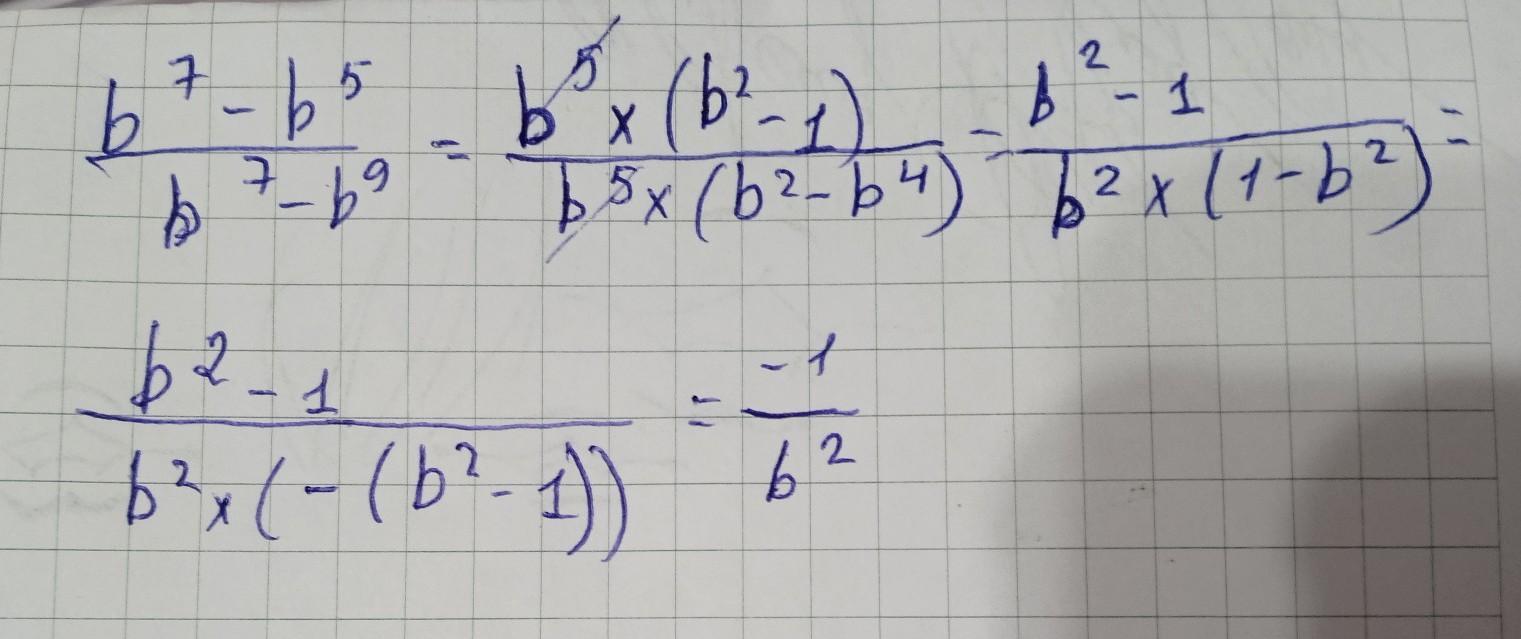 \frac{b^7 - b^5}{b^7 - b^9} = \frac{b^5 \times (b^2 - 1)}{b^5 \times (b^2 - b^4)} = \frac{b^2 - 1}{b^2 \times (1 - b^2)} =
\frac{b^2 - 1}{b^2 \times (-(b^2 - 1))} = \frac{-1}{b^2}